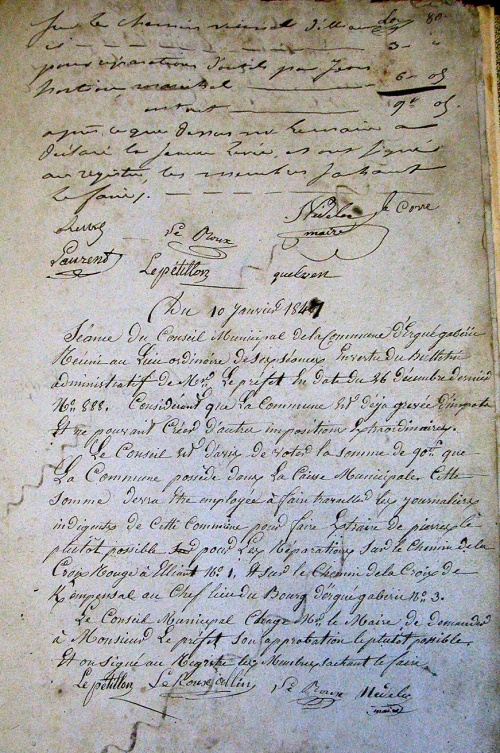 Sur le chemin vicinal d'Elliant
3 "
pour réparations d'outils par Jean
6 05
9 05
après ce que dessus Mr le maire a
déclaré la séance levée, et ont signé
au registre, les membres sachant
le faire.
Le Roux
Nédelec
maire
Le Corre
Laurent
Le pétillon
quelven
Du 10 Janvier 1847
Séance du Conseil Municipal de la Commune d'Ergué gabéric
Réuni au Lieu ordinaire de ses séances En vertu du Bulletin
administratif de Mr Le préfet En date du 26 Décembre dernier
No 888. Considérant que La Commune Est déja grevée d'impots
Et ne pouvant Créer d'autre impositions Extraordinaires.
Le Conseil Est d'avis de voter la somme de 90f que
La Commune possède dans La Caisse Municipale Cette
somme devra Etre employée à faire travailler les journaliers
indigents de Cette Commune pour faire Extraire de pierres le
plutot possible pour Les Réparations Sur le Chemin de la
Croix Rouge à Elliant No 1. Et sur le Chemin de la Croix de
Kempensal au Chef lieu du Bourg d'Ergué gabéric No 3.
Le Conseil Municipal Charge Mr le Maire de demander
à Monsieur Le préfet son approbation le plutot possible
Et on signé au Registre les Membres sachant le faire
Le pétillon Le Roux Le Roux Nédelec
maire